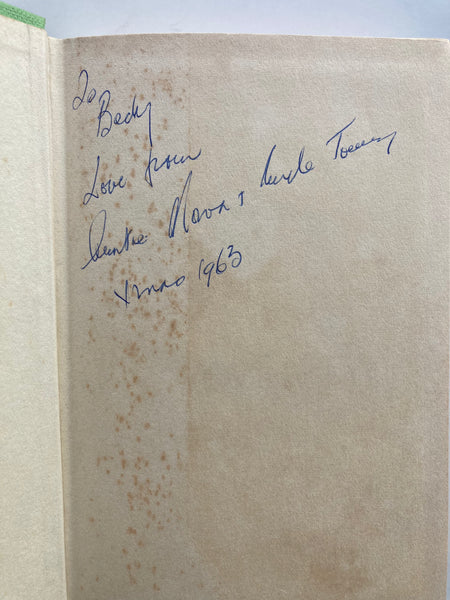 To
Becky
Love from
Auntie Nora & Uncle Tommy
Xmas 1963